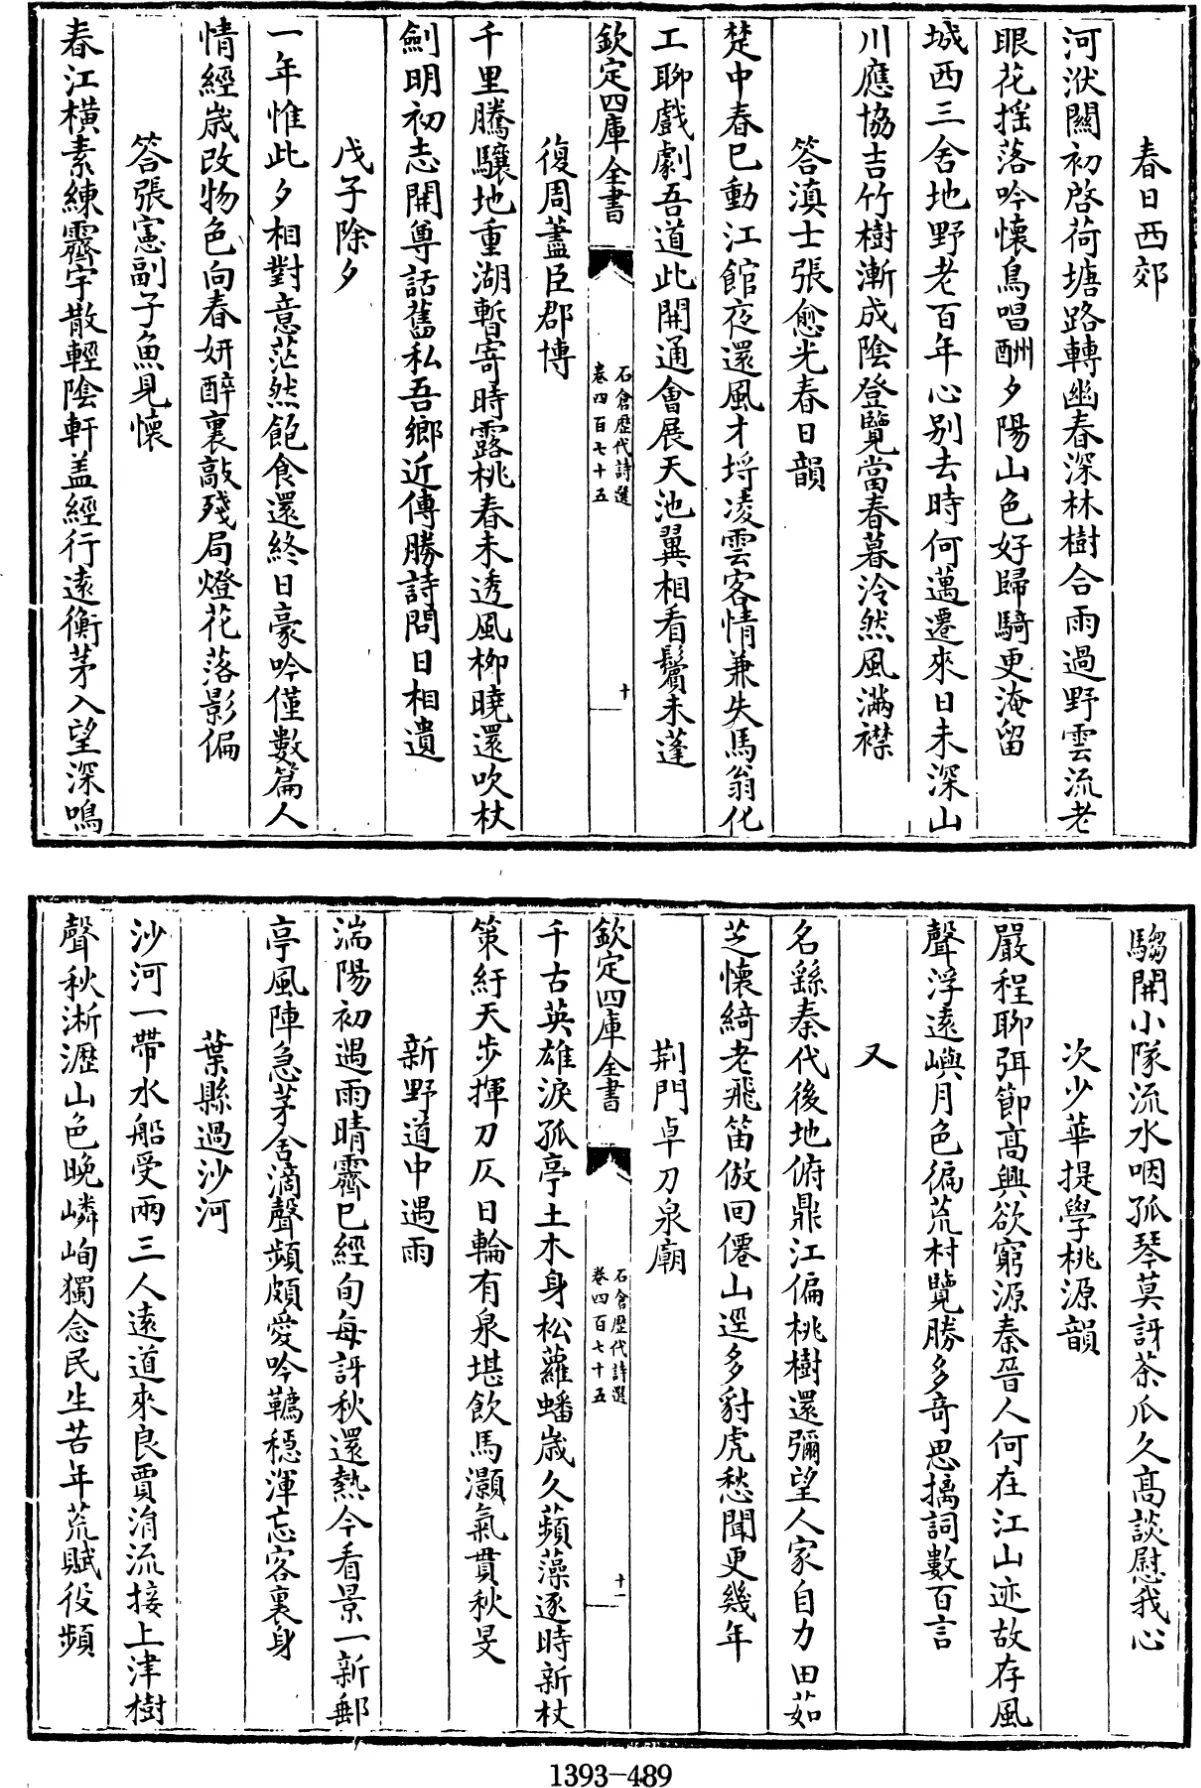 春日西郊
河洑關初啓荷塘路轉幽春深林樹合雨過野雲流老
眼花揺落吟懷鳥唱酬夕陽山色好歸騎更淹留
城西三舍地野老百年心别去時何邁遷來日未深山
川應協吉竹樹漸成陰登覽當春暮泠然風滿襟
答滇士張愈光春日韻
楚中春已動江館夜還風才埒凌雲客情兼失馬翁化
工聊戲劇吾道此開通會展天池翼相看鬢未蓬
欽定四庫全書
石倉歴代詩選
卷四百七十五
十
復周藎臣郡博
千里騰驤地重湖暫寄時露桃春未透風柳曉還吹杖
劍明初志開尊話舊私吾鄉近傳勝詩問日相遺
戊子除夕
一年惟此夕相對意茫然飽食還終日豪吟僅數篇人
情經歲改物色向春妍醉裏敲殘局燈花落影偏
答張憲副子魚見懷
春江横素練霽宇散輕陰軒盖經行遠衡茅入望深鳴
騶開小隊流水咽孤琴莫訝茶瓜久高談慰我心
次少華提學桃源韻
嚴程聊弭節高興欲窮源秦晉人何在江山迹故存風
聲浮遠嶼月色徧荒村覽勝多奇思摛詞數百言
又
名繇秦代後地俯鼎江偏桃樹還彌望人家自力田茹
芝懷綺老飛笛倣回僊山逕多豺虎愁聞更幾年
荆門卓刀泉廟
欽定四庫全書
石倉歴代詩選
卷四百七十五
十一
千古英雄淚孤亭土木身松蘿蟠歲久蘋藻逐時新杖
策紆天步揮刀仄日輪有泉堪飲馬灝氣貫秋旻
新野道中遇雨
湍陽初遇雨晴霽已經旬每訝秋還熱今看景一新郵
亭風陣急茅舍滴聲頻頗愛吟鞯穩渾忘客裏身
葉縣過沙河
沙河一帶水船受兩三人遠道來良賈涓流接上津樹
聲秋淅瀝山色晚嶙峋獨念民生苦年荒賦役頻
1393-489